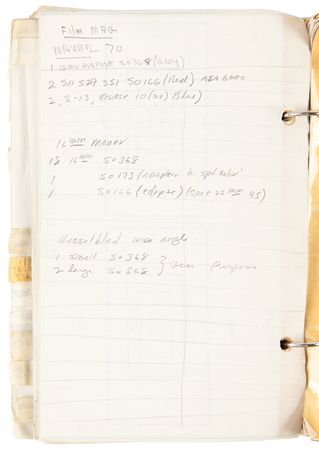 Film MAG
MAURER 70
1 GEN PURPOSE SO368 (Grey)
2 S11 S29 S51 SO166 (Red) ASA 6000
2, S-13, 10 (UV) Blue)
16mm MAURER
18 16mm SO368
1 SO173 hi spd color
1 SO166 25mm
Hasselblad wide angle
1 small SO368
2 large SO368 } Gen Purpose